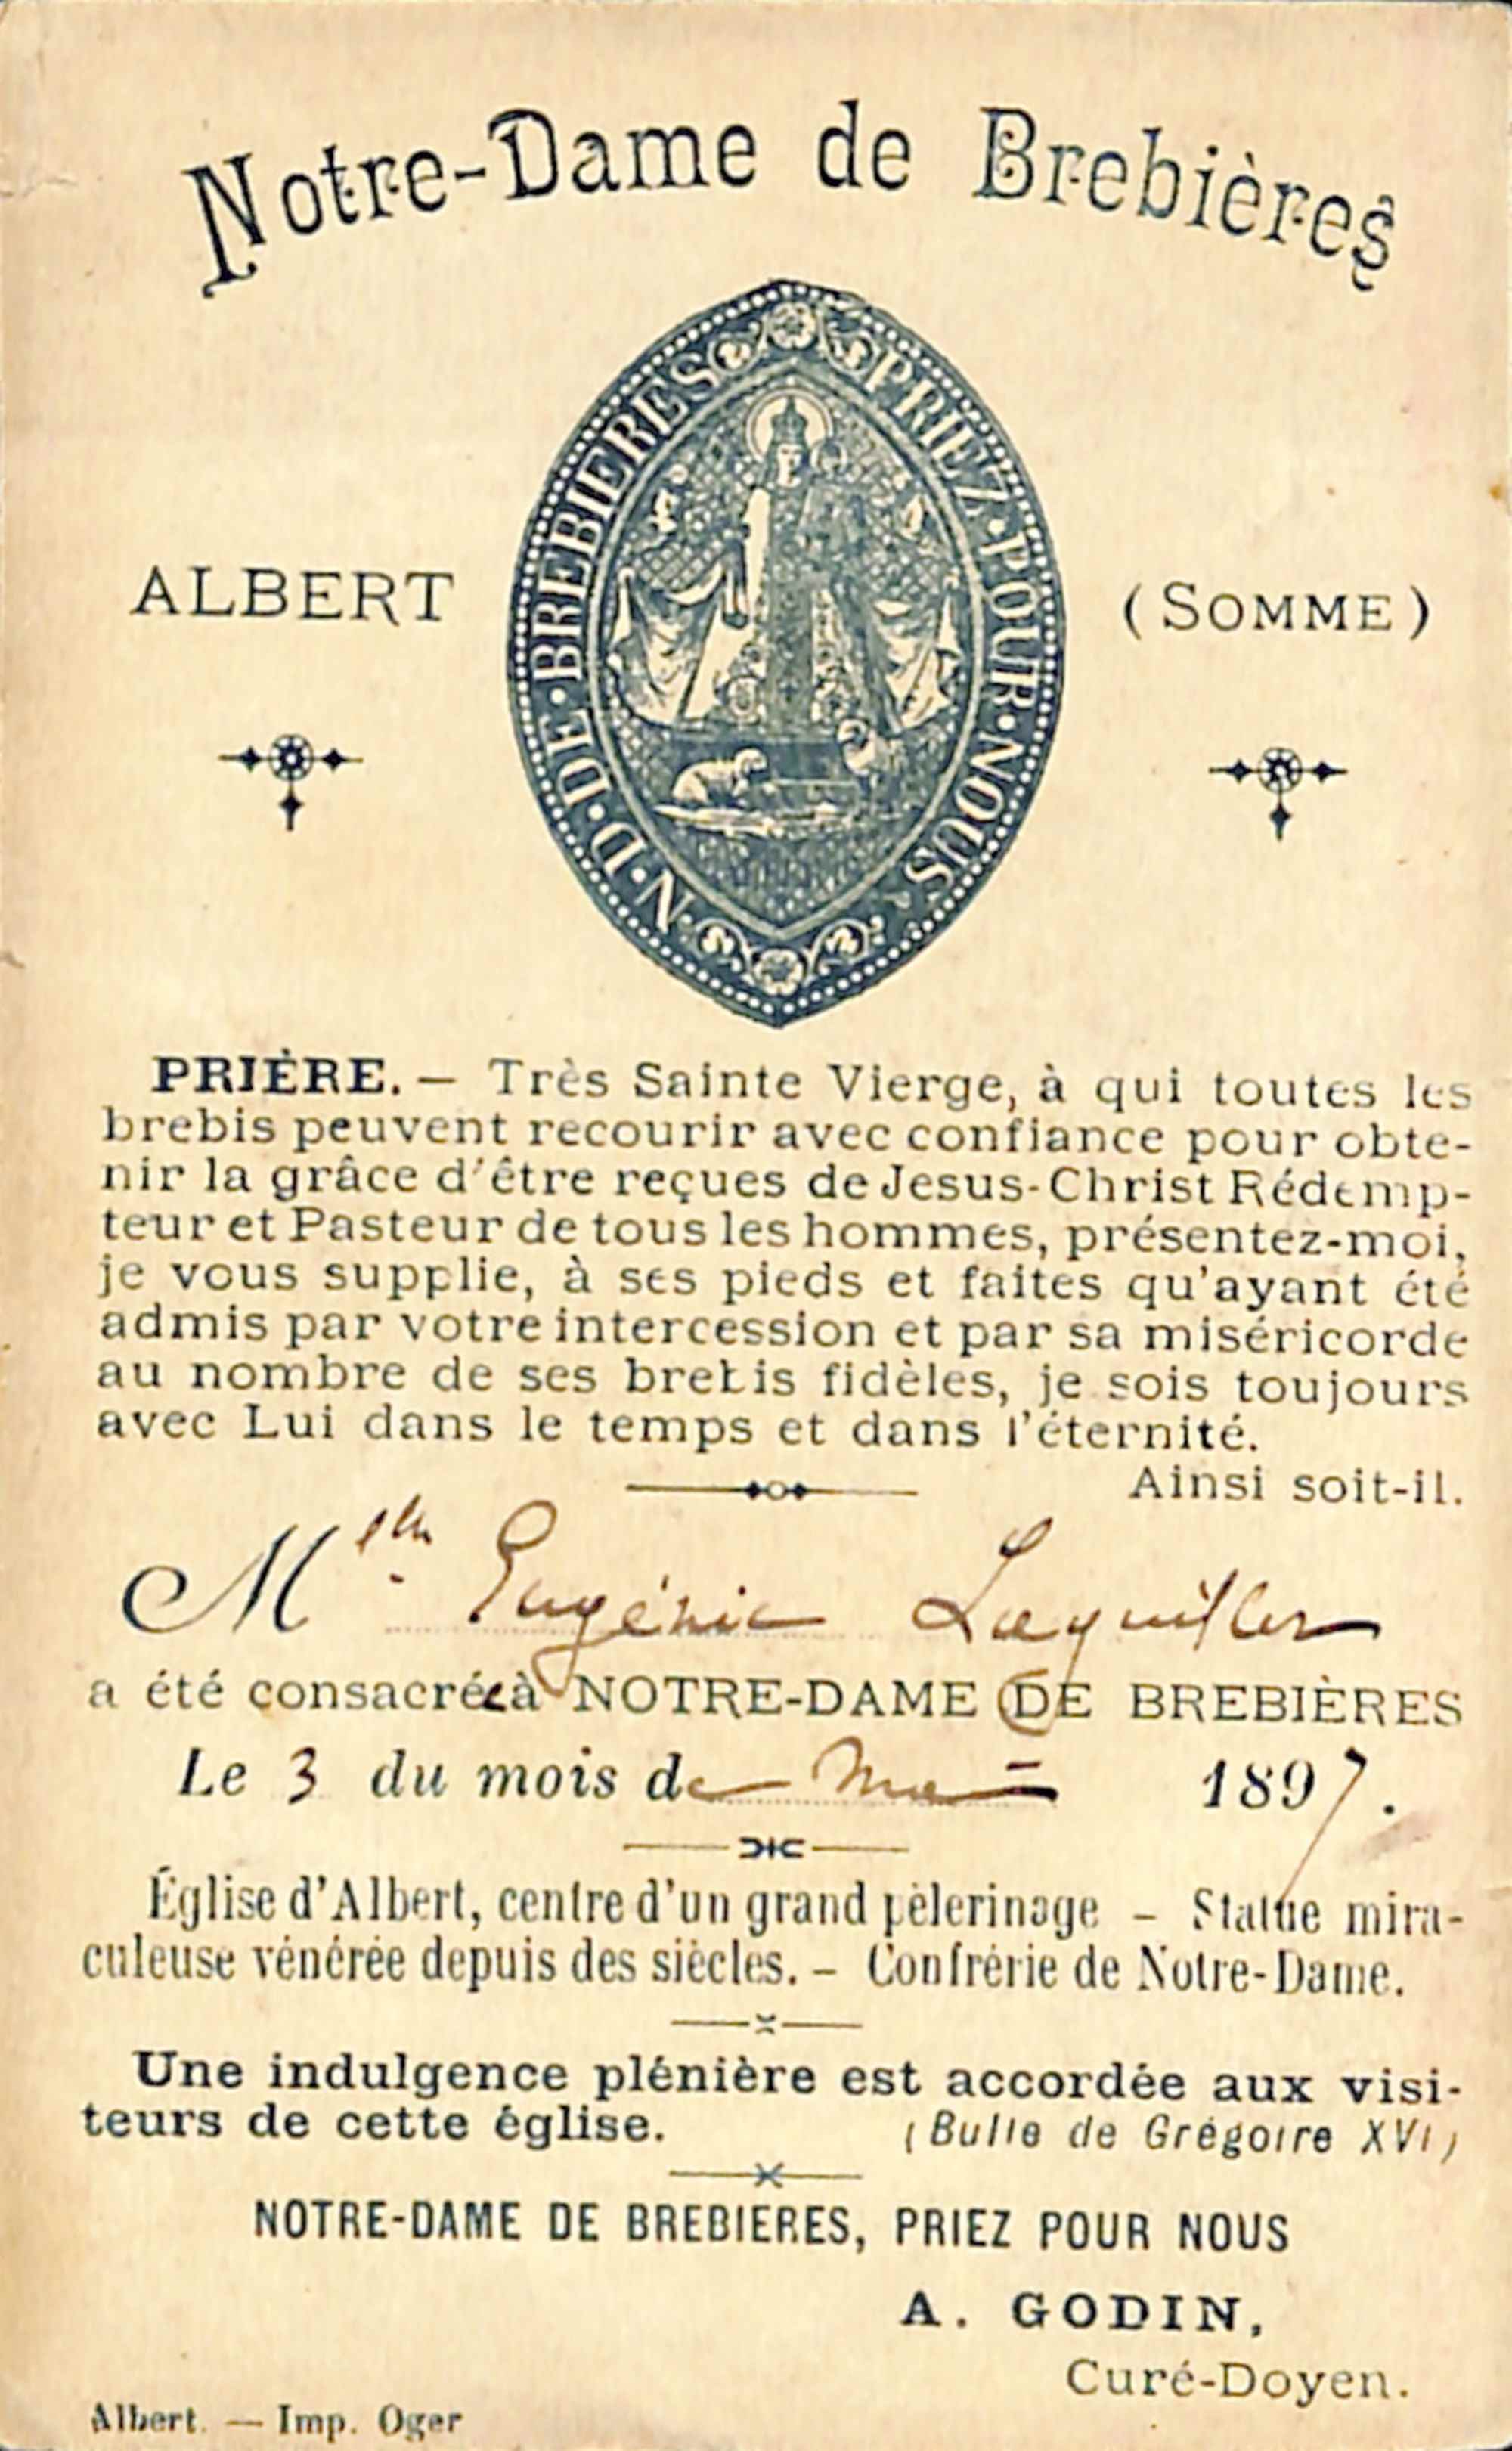 Notre-Dame de Brebières
N·D·DE·BREBIERES PRIEZ·POUR·NOUS
ALBERT (SOMME)
PRIÈRE. — Très Sainte Vierge, à qui toutes les
brebis peuvent recourir avec confiance pour obte-
nir la grâce d'être reçues de Jesus-Christ Rédemp-
teur et Pasteur de tous les hommes, présentez-moi,
je vous supplie, à ses pieds et faites qu'ayant été
admis par votre intercession et par sa miséricorde
au nombre de ses brebis fidèles, je sois toujours
avec Lui dans le temps et dans l'éternité.
Ainsi soit-il.
Mlle Eugénie
a été consacrée à NOTRE-DAME DE BREBIÈRES
Le 3 du mois de 1897.
Église d'Albert, centre d'un grand pèlerinage – Statue mira-
culeuse vénérée depuis des siècles. – Confrérie de Notre-Dame.
Une indulgence plénière est accordée aux visi-
teurs de cette église. (Bulle de Grégoire XVI)
NOTRE-DAME DE BREBIERES, PRIEZ POUR NOUS
A. GODIN,
Curé-Doyen.
Albert. — Imp. Oger